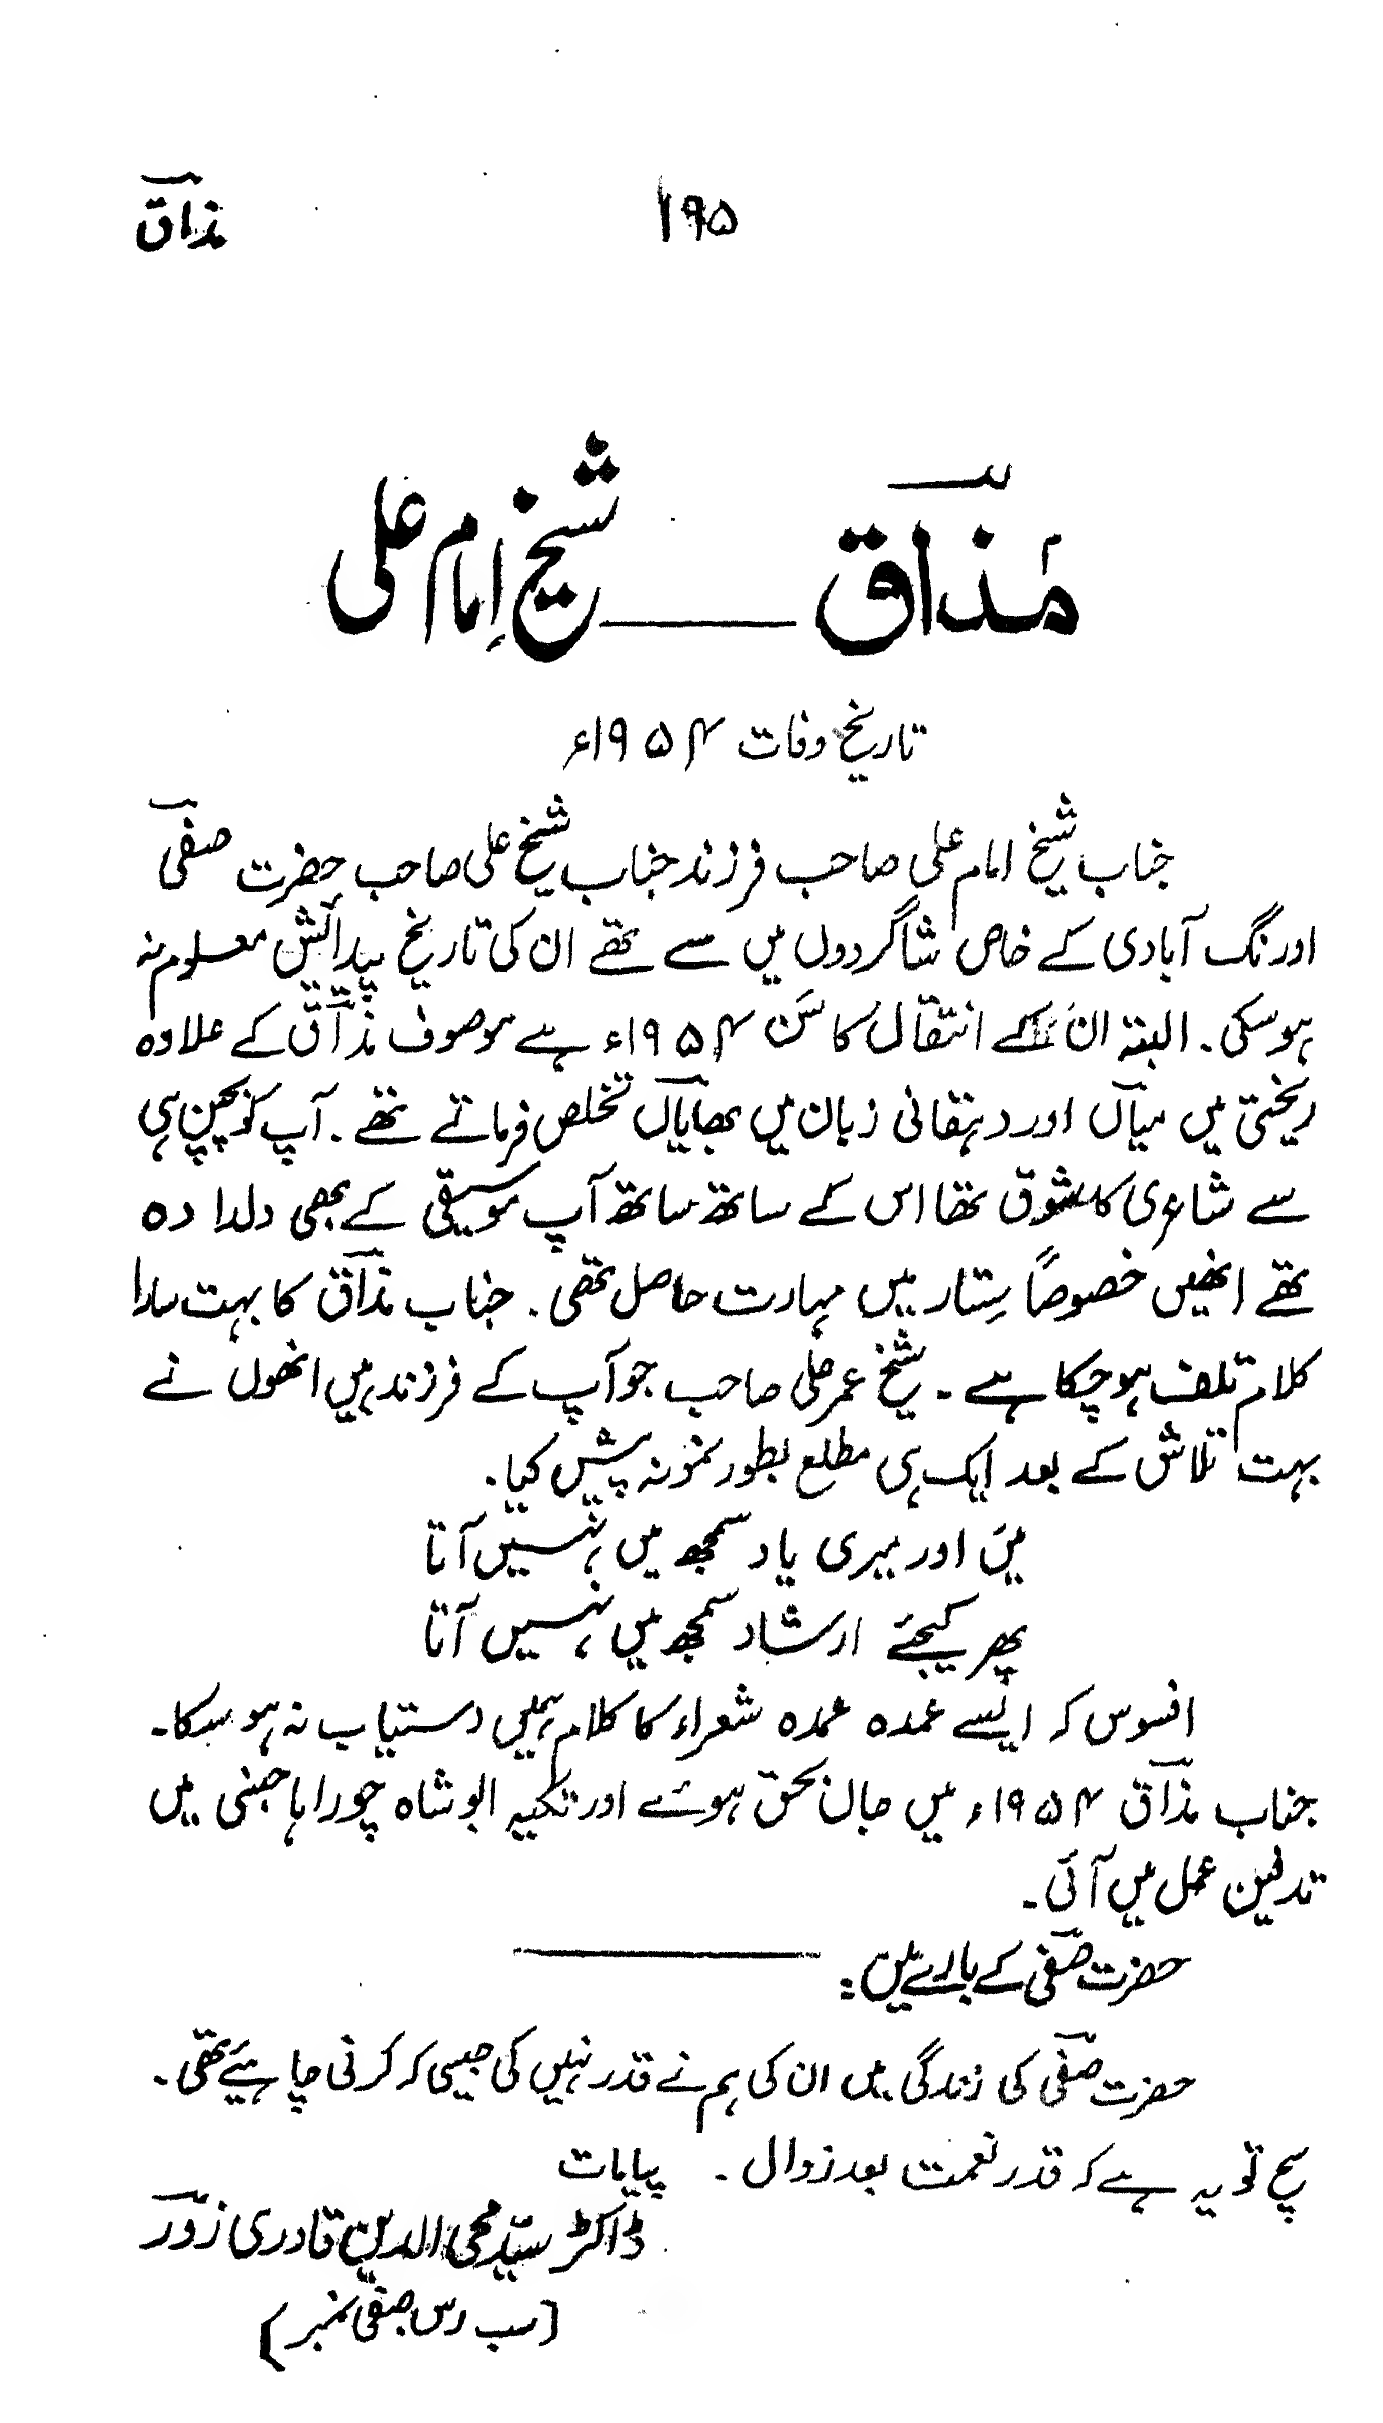 مذاقؔ
۱۹۵
مَذاقؔ ــــ شیخ اِمام علی
تاریخ وفات ۱۹۵۴ء
جناب شیخ امام علی صاحب فرزند جناب شیخ علی صاحب حضرت صفیؔ
اورنگ آبادی کے خاص شاگردوں میں سے تھے ان کی تاریخ پیدائش معلوم نہ
ہوسکی۔ البتہ ان کے انتقال کا سَن ۱۹۵۴ء ہے موصوف مذاقؔ کے علاوہ
ریختی میں میاںؔ اور دہقانی زبان میں بھایاںؔ تخلص فرماتے تھے۔ آپ کو بچپن ہی
سے شاعری کا شوق تھا اس کے ساتھ ساتھ آپ موسیقی کے بھی دلدادہ
تھے انھیں خصوصاً سِتار میں مہارت حاصل تھی۔ جناب مذاقؔ کا بہت سارا
کلام تلف ہوچکا ہے۔ شیخ عمر علی صاحب جو آپ کے فرزند ہیں انھوں نے
بہت تلاش کے بعد ایک ہی مطلع بطور نمونہ پیش کیا۔
میں اور میری یاد سمجھ میں نہیں آتا
پھر کیجئے ارشاد سمجھ میں نہیں آتا
افسوس کہ ایسے عمدہ عمدہ شعراء کا کلام ہمیں دستیاب نہ ہو سکا۔
جناب مذاقؔ ۱۹۵۴ء میں جاں بحق ہوئے اور تکیہ الو شاہ چوراہا جنسی میں
تدفین عمل میں آئی۔
حضرت صفیؔ کے بارے میں:
حضرت صفیؔ کی زندگی میں ان کی ہم نے قدر نہیں کی جیسی کہ کرنی چاہیئے تھی۔
سچ تو یہ ہے کہ قدر نعمت بعد زوال۔
ڈاکٹر سیّد محی الدین قادری زورؔ
(سب رس صفی نمبر)